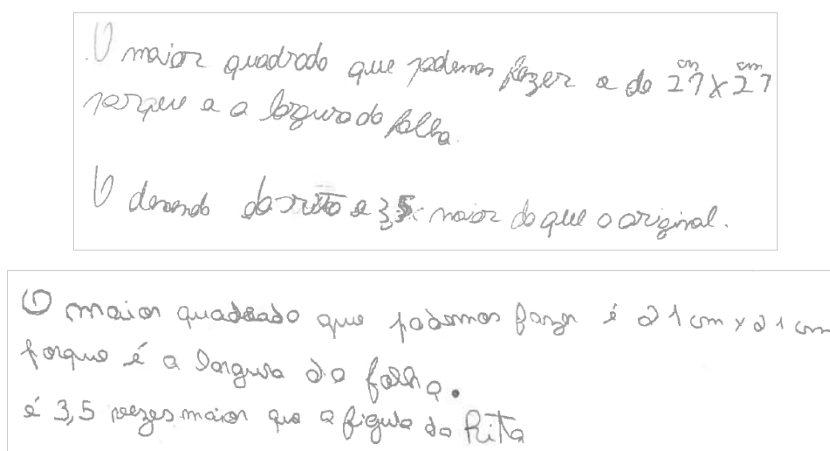 O maior quadrado que podemos fazer e de 21cm x 21cm
porque e a largura da folha.
O desenho da rita e 3,5x maior do que o original.
O maior quadrado que podemos fazer é 21 cm x 21 cm
porque é a largura da folha.
é 3,5 vezes maior que a figura da Rita